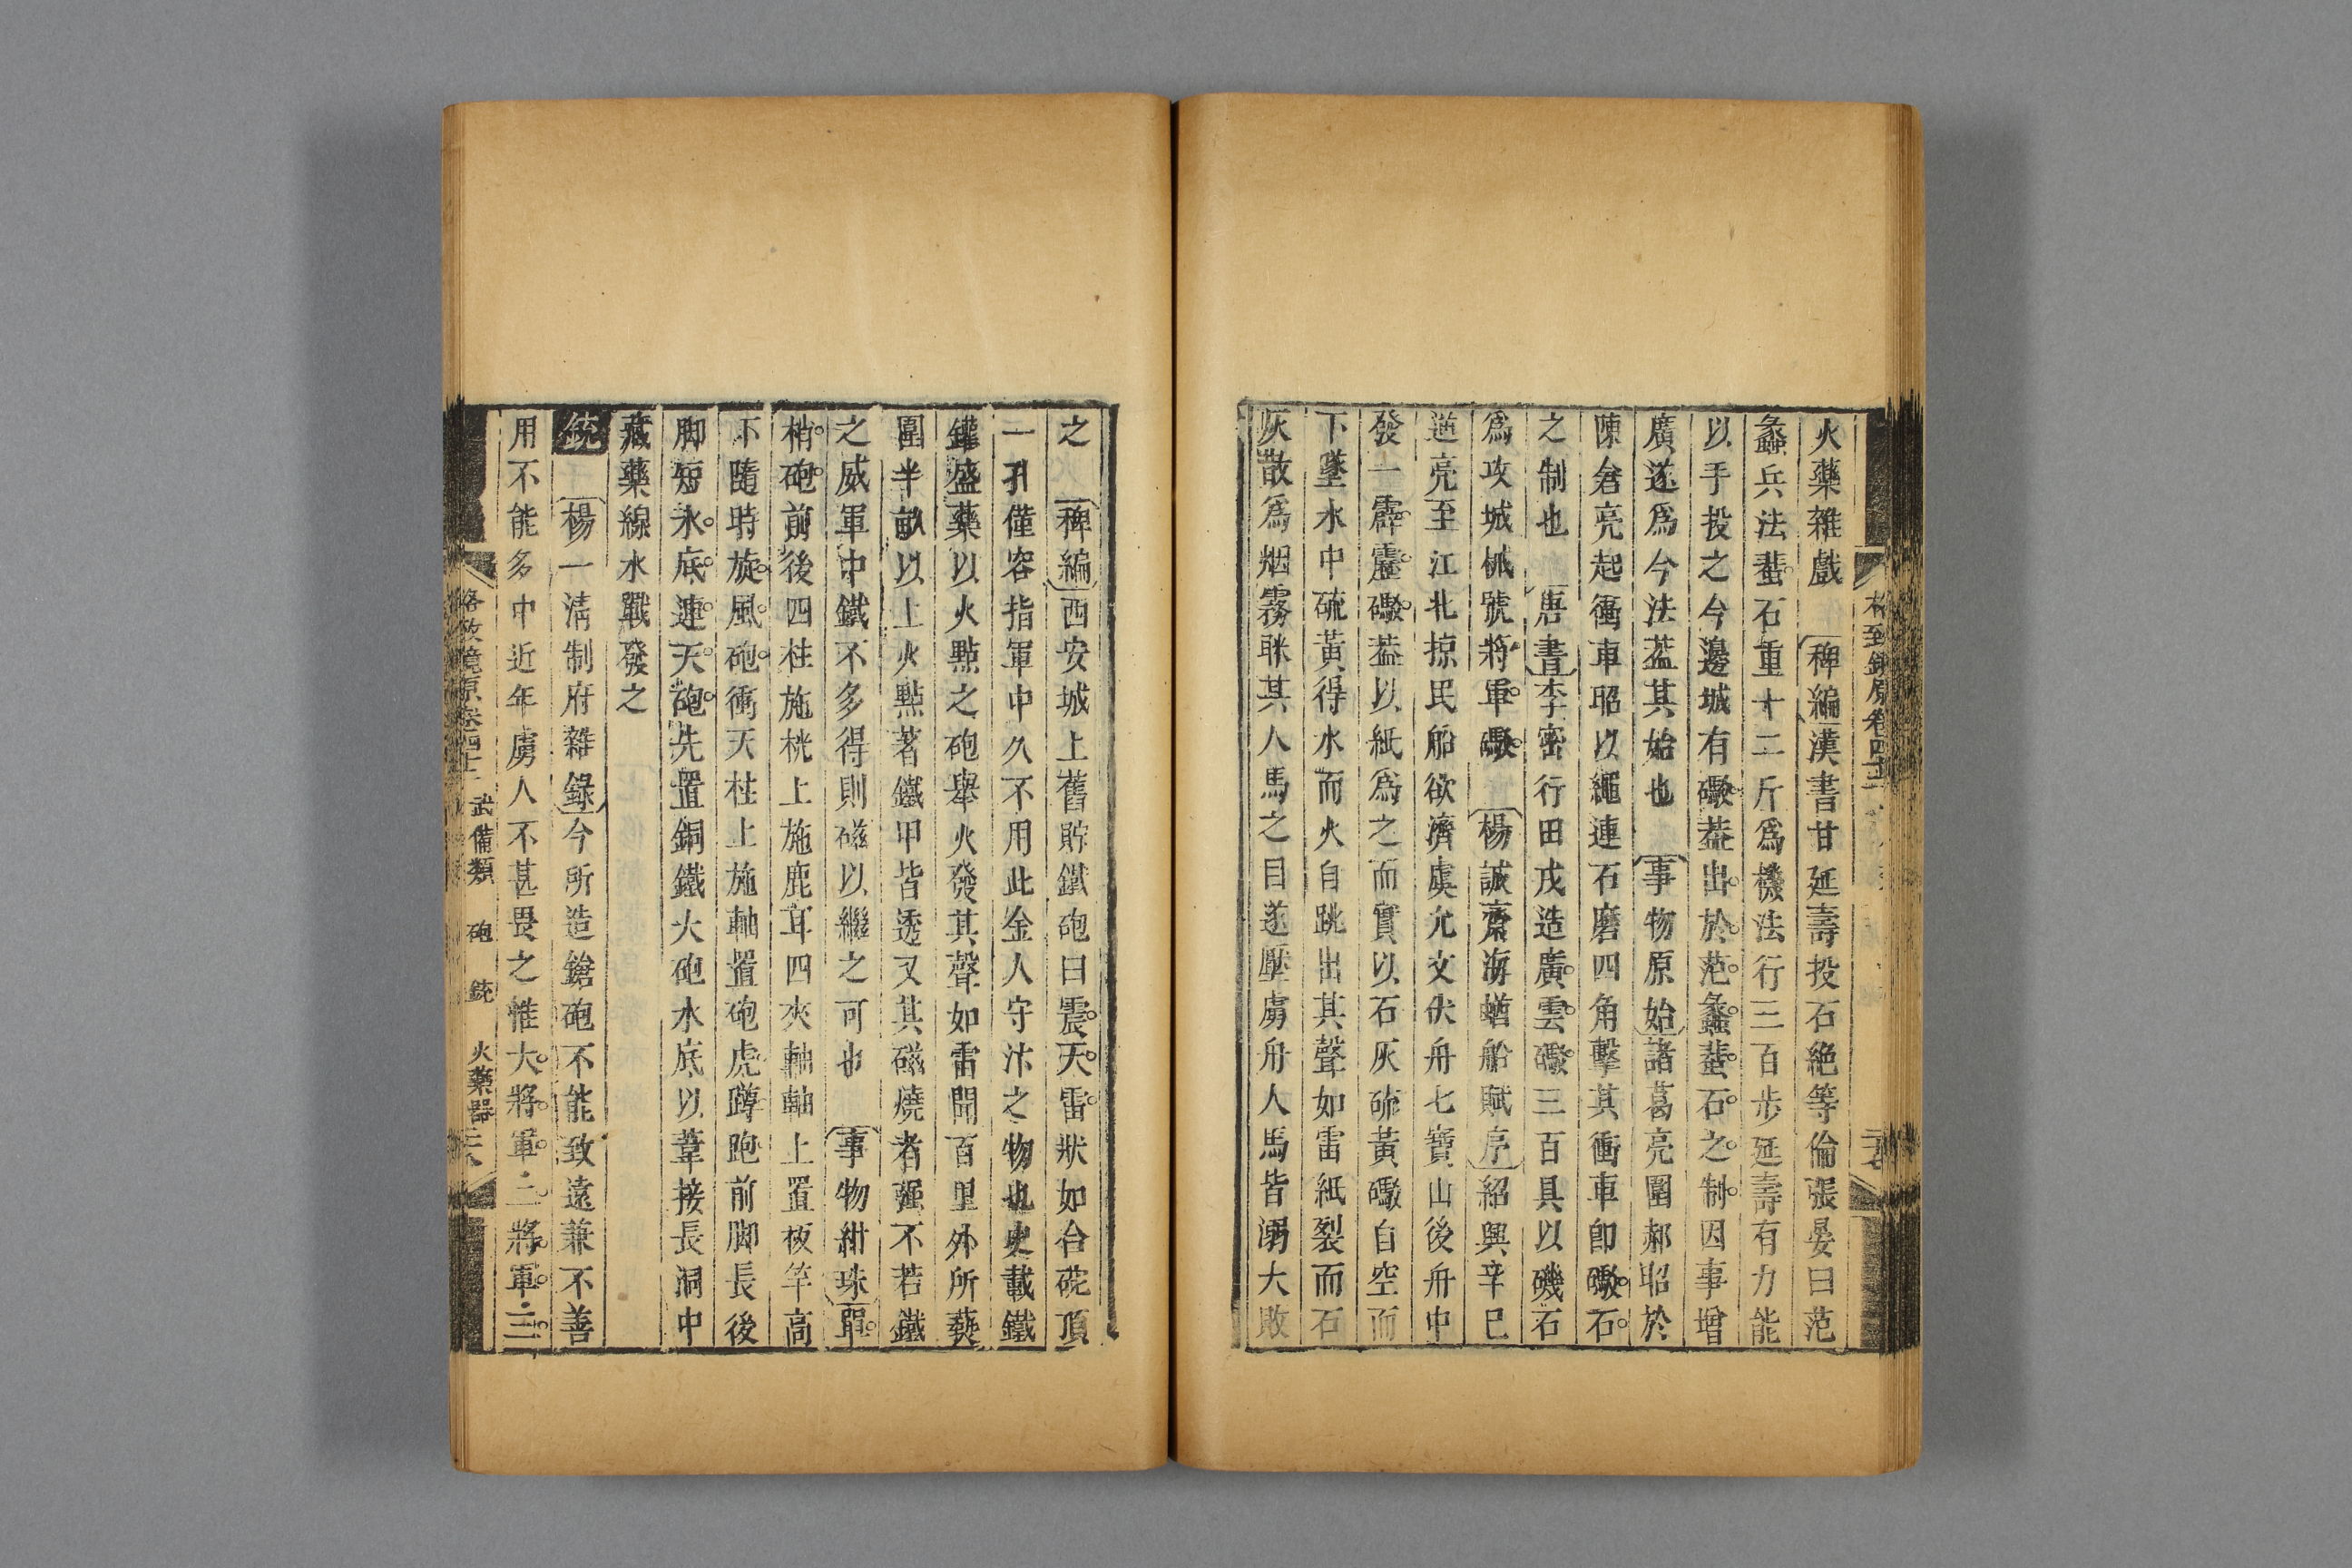 火藥雜戲 稗編漢書甘延壽投石絶等倫張晏曰范
蠡兵法蜚石重十二斤爲機法行三百步延壽有力能
以手投之今邊城有礮葢出於范蠡蜚石之制因事增
廣遂爲今法葢其始也 事物原始諸葛亮圍郝昭於
陳倉亮起衝車昭以繩連石磨四角擊其衝車卽礮石
之制也 唐書李密行田戊造廣雲礮三百具以磯石
爲攻城械號將軍礮 楊誠齋海蝤船賦序紹興辛巳
逆亮至江北掠民船欲濟虞允文伏舟七寶山後舟中
發一霹靂礮葢以紙爲之而實以石灰硫黃礮自空而
下墜水中硫黃得水而火自跳出其聲如雷紙裂而石
灰散爲烟霧眯其人馬之目遂壓虜舟人馬皆溺大敗
之 稗編西安城上舊貯鐵砲曰震天雷狀如合碗頂
一孔僅容指軍中久不用此金人守汴之物也史載鐵
鑵盛藥以火點之砲舉火發其聲如雷聞百里外所爇
圍半畝以上火點著鐵甲皆透又其磁燒者强不若鐵
之威軍中鐵不多得則磁以繼之可也 事物紺珠單
梢砲前後四柱施桄上施鹿耳四夾軸軸上置板竿高
下隨時旋風砲衝天柱上施軸置砲虎蹲跑前脚長後
脚短水底連天砲先置銅鐵大砲水底以葦接長洞中
藏藥線水戰發之
銃 楊一淸制府雜錄今所造鎗砲不能致遠兼不善
用不能多中近年虜人不甚畏之惟大將軍二將軍三
武備類 砲 銃 火藥器